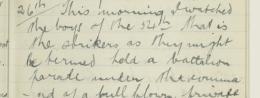 26th This morning I watched
the boys of the 54th that is
the strikers as they might
be termed hold a battalion
parade under the comma
nd of a full blown private